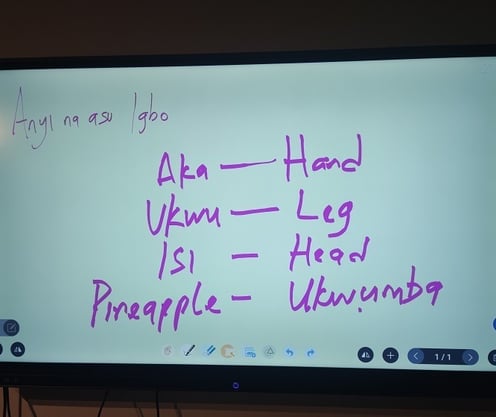 Anyi na asu Igbo
Aka — Hand
Ukwu — Leg
Isi — Head
Pineapple — Ukwụmba
1/1